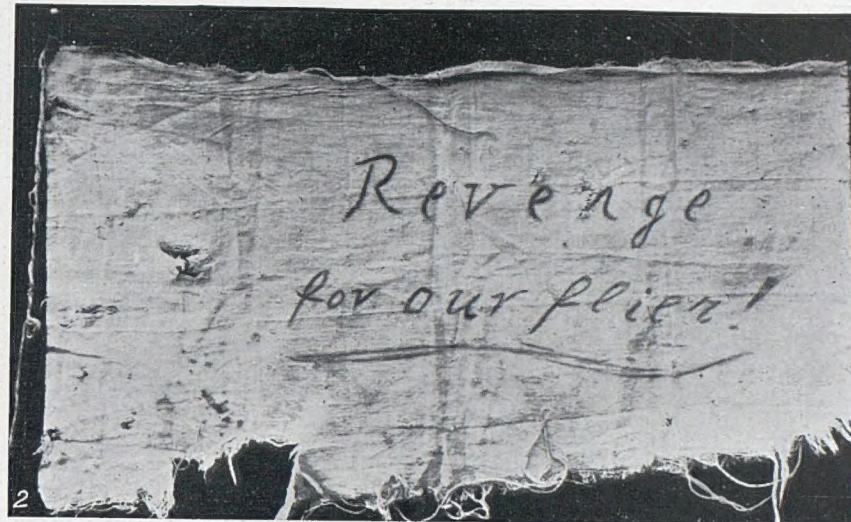 Revenge
for our flier!
2